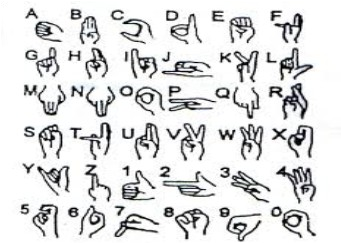 A B C D E F
G H I J K L
M N O P Q R
S T U V W X
Y Z 1 2 3 4
5 6 7 8 9 0